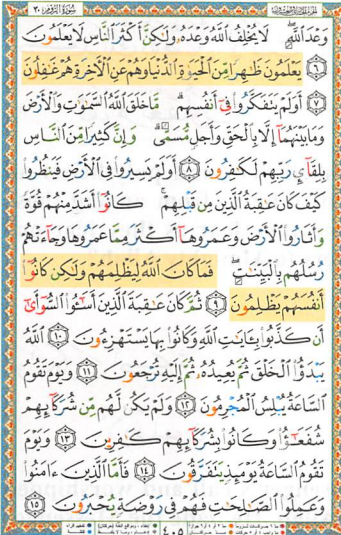 سورة الروم ٣٠
وَعْدَ ٱللَّهِ ۖ لَا يُخْلِفُ ٱللَّهُ وَعْدَهُۥ وَلَٰكِنَّ أَكْثَرَ ٱلنَّاسِ لَا يَعْلَمُونَ
٦ يَعْلَمُونَ ظَٰهِرًا مِّنَ ٱلْحَيَوٰةِ ٱلدُّنْيَا وَهُمْ عَنِ ٱلْءَاخِرَةِ هُمْ غَٰفِلُونَ
٧ أَوَلَمْ يَتَفَكَّرُوا۟ فِىٓ أَنفُسِهِم ۗ مَّا خَلَقَ ٱللَّهُ ٱلسَّمَٰوَٰتِ وَٱلْأَرْضَ
وَمَا بَيْنَهُمَآ إِلَّا بِٱلْحَقِّ وَأَجَلٍ مُّسَمًّى ۗ وَإِنَّ كَثِيرًا مِّنَ ٱلنَّاسِ
بِلِقَآئِ رَبِّهِمْ لَكَٰفِرُونَ ٨ أَوَلَمْ يَسِيرُوا۟ فِى ٱلْأَرْضِ فَيَنظُرُوا۟
كَيْفَ كَانَ عَٰقِبَةُ ٱلَّذِينَ مِن قَبْلِهِمْ ۚ كَانُوٓا۟ أَشَدَّ مِنْهُمْ قُوَّةً
وَأَثَارُوا۟ ٱلْأَرْضَ وَعَمَرُوهَآ أَكْثَرَ مِمَّا عَمَرُوهَا وَجَآءَتْهُمْ
رُسُلُهُم بِٱلْبَيِّنَٰتِ ۖ فَمَا كَانَ ٱللَّهُ لِيَظْلِمَهُمْ وَلَٰكِن كَانُوٓا۟
أَنفُسَهُمْ يَظْلِمُونَ ٩ ثُمَّ كَانَ عَٰقِبَةَ ٱلَّذِينَ أَسَٰٓـُٔوا۟ ٱلسُّوٓأَىٰٓ
أَن كَذَّبُوا۟ بِـَٔايَٰتِ ٱللَّهِ وَكَانُوا۟ بِهَا يَسْتَهْزِءُونَ ١٠ ٱللَّهُ
يَبْدَؤُا۟ ٱلْخَلْقَ ثُمَّ يُعِيدُهُۥ ثُمَّ إِلَيْهِ تُرْجَعُونَ ١١ وَيَوْمَ تَقُومُ
ٱلسَّاعَةُ يُبْلِسُ ٱلْمُجْرِمُونَ ١٢ وَلَمْ يَكُن لَّهُم مِّن شُرَكَآئِهِمْ
شُفَعَٰٓؤُا۟ وَكَانُوا۟ بِشُرَكَآئِهِمْ كَٰفِرِينَ ١٣ وَيَوْمَ
تَقُومُ ٱلسَّاعَةُ يَوْمَئِذٍ يَتَفَرَّقُونَ ١٤ فَأَمَّا ٱلَّذِينَ ءَامَنُوا۟
وَعَمِلُوا۟ ٱلصَّٰلِحَٰتِ فَهُمْ فِى رَوْضَةٍ يُحْبَرُونَ ١٥
٤٠٥